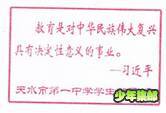 教育是对中华民族伟大复兴
具有决定性意义的事业。
—习近平
天水市第一中学学生
少年集邮